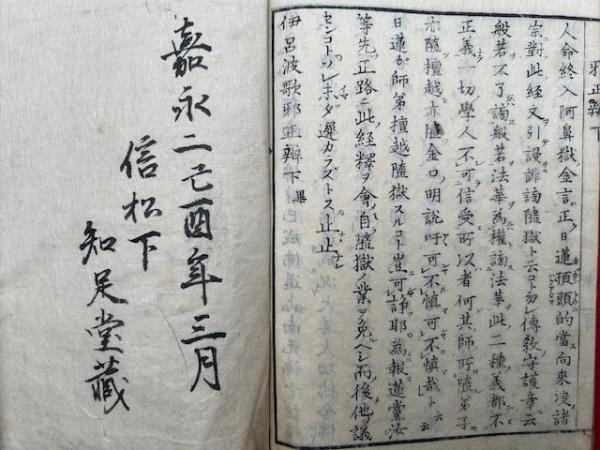 邪正辨下
人命終入阿鼻獄金言正ク日蓮頂頭的當向來没諸
宗對此經文引謾誹謗墮獄ト云コト勿レ傳教守護章ニ云
般若不了謗般若法華為權謗法華此二種義都不
正義一切學人不可信受所以者何其師所墮弟子
亦隨檀越亦隨金口明説吁可不慎可不慎哉ト云云
日蓮ガ師弟檀越墮獄スルコト豈可諍耶為報蓮黨汝
等先ツ正路ニ此經釋ヲ會シ自墮獄ノ業ヲ免ヘシ而後他ヲ議
センコト未ダ遲カラズトス止止
伊呂波歌邪正辨下畢
嘉永二己酉年三月
信松下
知足堂藏